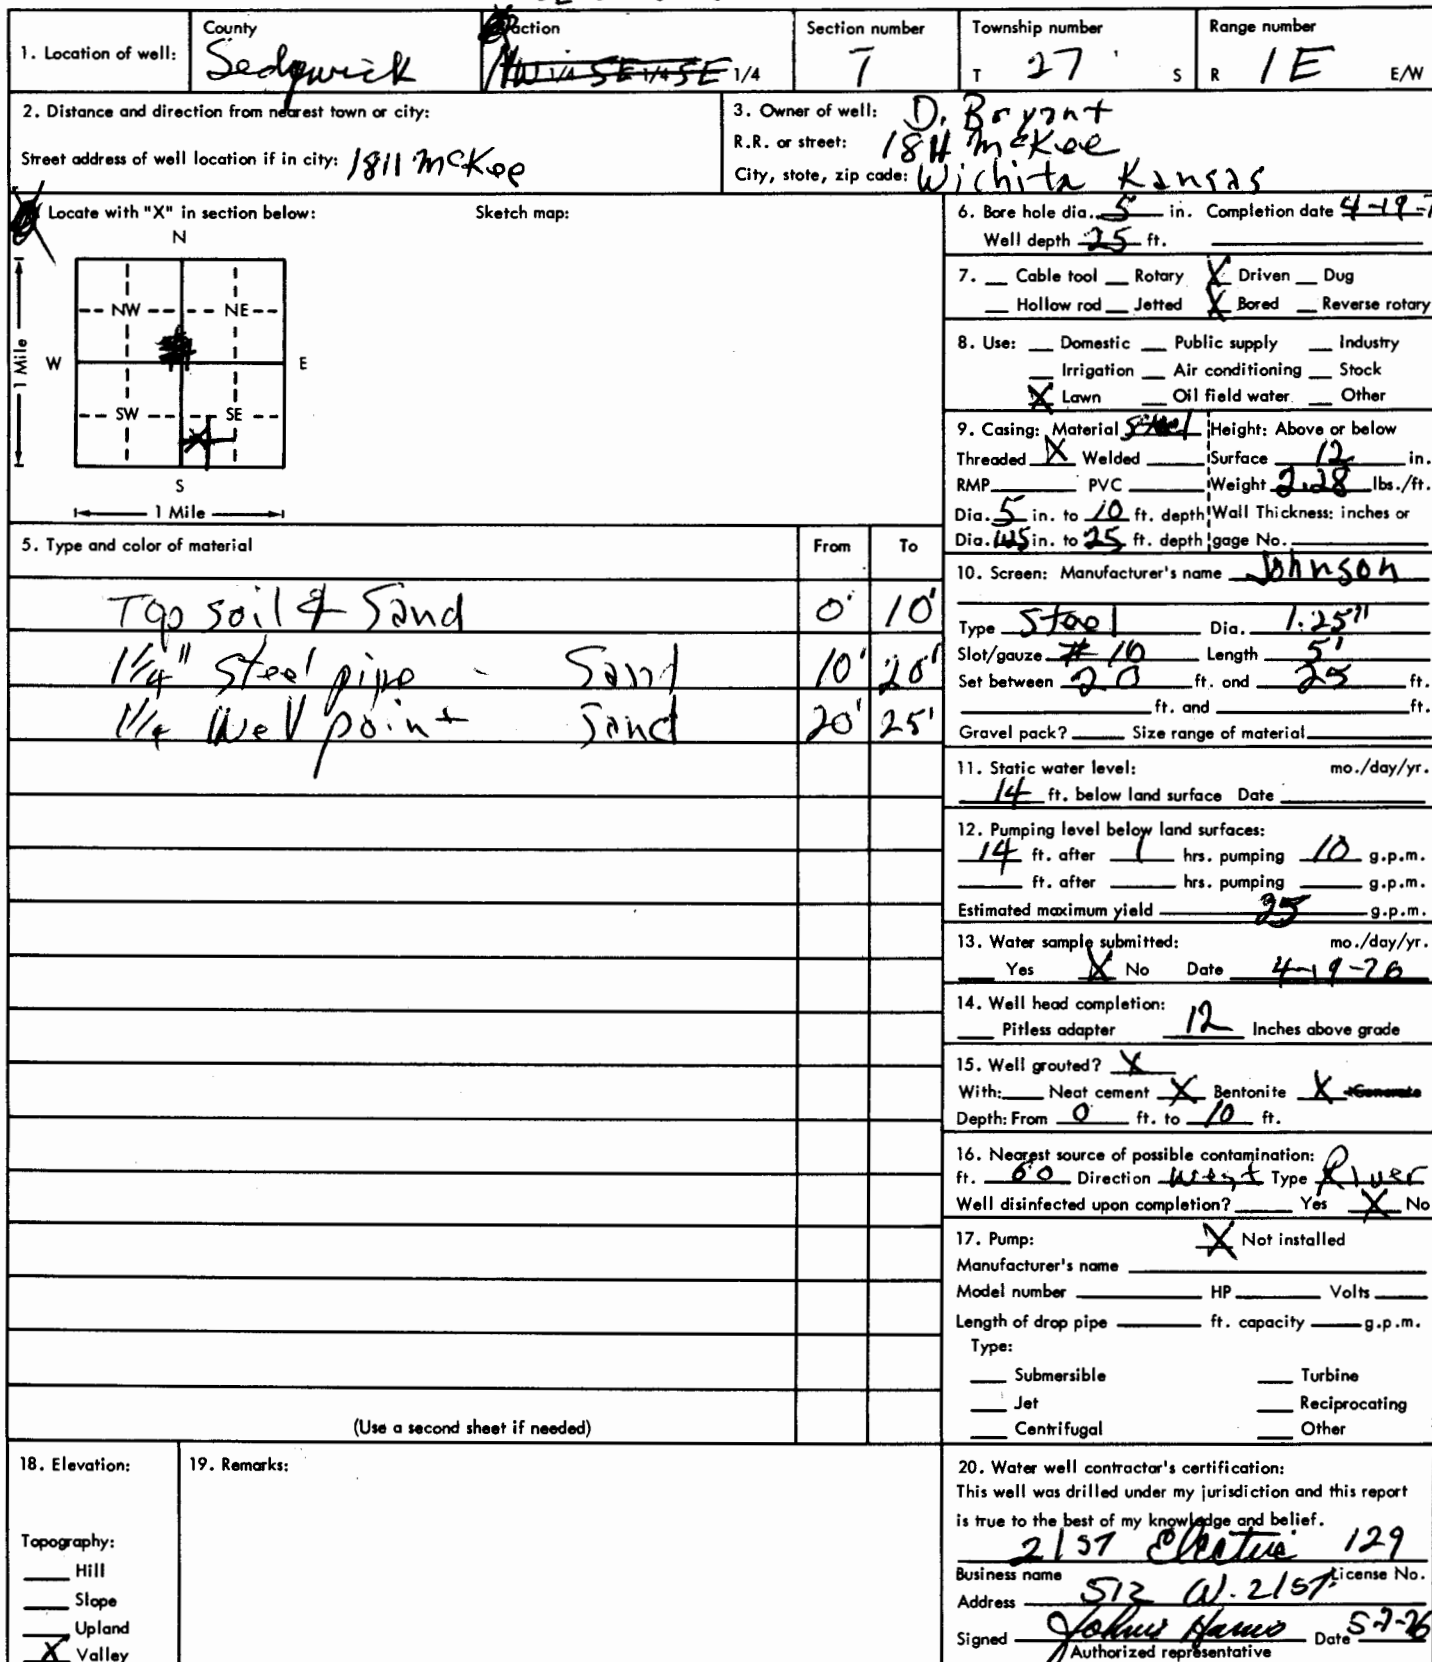 County
Sedgwick
action
NW 1/4 SE 1/4 SE 1/4
Section number
7
Township number
T 27 S
Range number
R 1E E/W
1. Location of well:
2. Distance and direction from nearest town or city:
Street address of well location if in city: 1811 McKee
3. Owner of well: D. Bryant
R.R. or street: 1811 McKee
City, state, zip code: Wichita Kansas
Locate with "X" in section below:
Sketch map:
N
NW NE
W E
SW SE
X
S
1 Mile
1 Mile
6. Bore hole dia. 5 in. Completion date 4-19-7
Well depth 25 ft.
7. Cable tool Rotary X Driven Dug
Hollow rod Jetted X Bored Reverse rotary
8. Use: Domestic Public supply Industry
Irrigation Air conditioning Stock
X Lawn Oil field water Other
9. Casing: Material Steel Height: Above or below
Threaded X Welded Surface 12 in.
RMP PVC Weight 2.28 lbs./ft.
Dia. 5 in. to 10 ft. depth Wall Thickness: inches or
Dia. 1.25 in. to 25 ft. depth gage No.
5. Type and color of material From To
Top soil & Sand 0' 10'
1 1/4" Steel pipe - Sand 10' 20'
1 1/4 Well point Sand 20' 25'
(Use a second sheet if needed)
10. Screen: Manufacturer's name Johnson
Type Steel Dia. 1.25"
Slot/gauze # 10 Length 5'
Set between 20 ft. and 25 ft.
ft. and ft.
Gravel pack? Size range of material
11. Static water level: mo./day/yr.
14 ft. below land surface Date
12. Pumping level below land surfaces:
14 ft. after 1 hrs. pumping 10 g.p.m.
ft. after hrs. pumping g.p.m.
Estimated maximum yield g.p.m.
13. Water sample submitted: mo./day/yr.
Yes X No Date 4-19-76
14. Well head completion:
Pitless adapter 12 Inches above grade
15. Well grouted? X
With: Neat cement X Bentonite X Concrete
Depth: From 0 ft. to 10 ft.
16. Nearest source of possible contamination:
ft. 60 Direction West Type River
Well disinfected upon completion? Yes X No
17. Pump: X Not installed
Manufacturer's name
Model number HP Volts
Length of drop pipe ft. capacity g.p.m.
Type:
Submersible Turbine
Jet Reciprocating
Centrifugal Other
18. Elevation:
Topography:
Hill
Slope
Upland
X Valley
19. Remarks:
20. Water well contractor's certification:
This well was drilled under my jurisdiction and this report
is true to the best of my knowledge and belief.
21st Electric 129
Business name License No.
Address 512 W. 21st.
Signed Date 5-7-76
Authorized representative